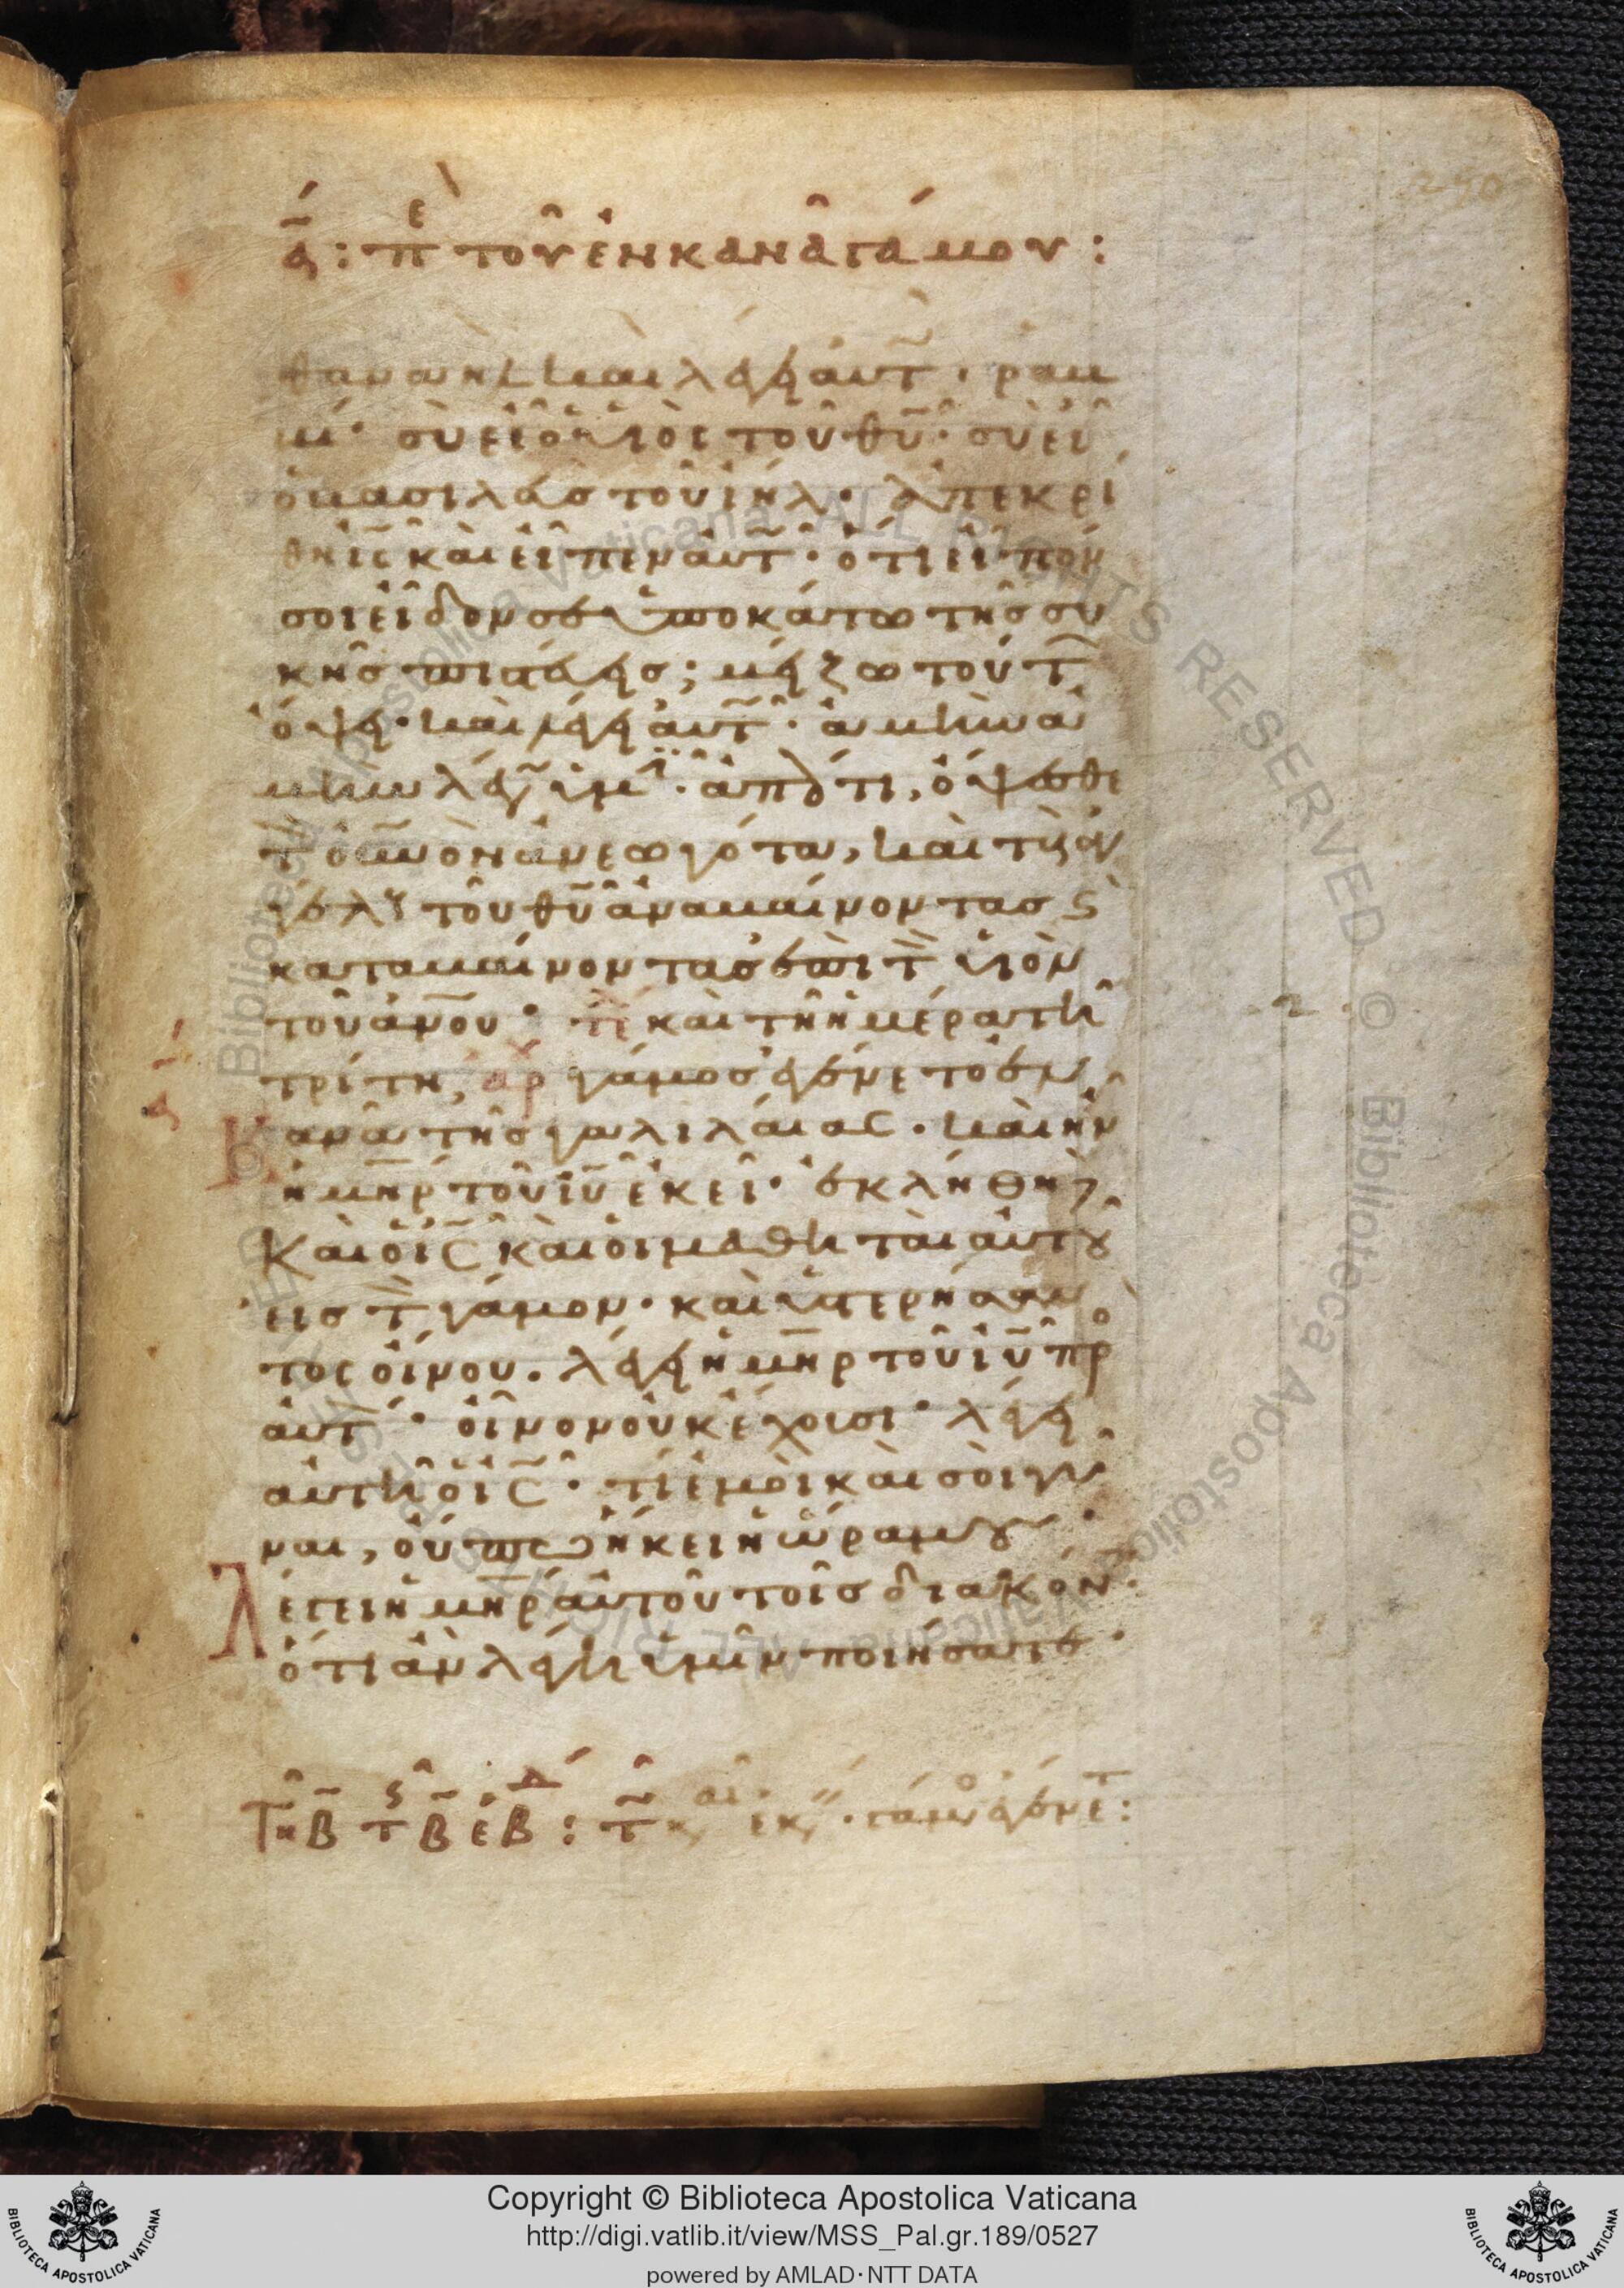 α̅: πὲ τοῦ ἐν κανᾶ γάμου:
θαναὴλ καὶ λέγει αὐτ̅· ραβ
βί· σὺ εἶ ὁ υἱὸς τοῦ θ̅υ̅· σὺ εἶ
ὁ βασιλεὺς τοῦ ι̅η̅λ̅· ἀπεκρί
θη ι̅ς̅ καὶ εἶπεν αὐτ̅· ὅτι εἶπόν
σοι εἶδόν σε ὑποκάτω τῆς συ
κῆς πιστεύεις; μείζω τούτ̅
ὄψει· καὶ λέγει αὐτ̅· ἀμὴν ἀ
μὴν λέγ̅ ὑμῖ̅· ἀπάρτι, ὄψεσθε
τ̅ ο̅υ̅ν̅ο̅ν̅ ἀνεωγότα, καὶ τοὺς ἀγ
γέλους τοῦ θ̅υ̅ ἀναβαίνοντας ϛ̀
καταβαίνοντας ἐπὶ τ̅ υἱὸν
τοῦ α̅ν̅ο̅υ̅· τε̅ καὶ τῆ ἡμέρα τῆ
τρίτη, αρχ γάμος ἐγένετο ἐν
α̅
Κανᾶ τῆς γαλιλαίας· καὶ ἦν
ἡ μ̅η̅ρ̅ τοῦ ι̅υ̅ ἐκεῖ· ἐκλήθη δὲ
Καὶ ὁ ι̅ς̅ καὶ οἱ μαθηταὶ αὐτοῦ
εἰς τ̅ γάμον· καὶ ὑστερήσαν
τος οἴνου. λέγει ἡ μ̅η̅ρ̅ τοῦ ι̅υ̅ πρ̀ο
αὐτ̅· οἶνον οὐκ ἔχουσι· λέγει
αὐτῆ ὁ ι̅ς̅· τί ἐμοὶ καὶ σοὶ γύ
ναι, οὔπω ἥκει ἡ ὥρα μου·
Λέγει ἡ μ̅η̅ρ̅ αὐτοῦ τοῖς διακόν̅·
ὅτι ἂν λέγη ὑμῖν ποιήσατε·
Τῆ β̅ τ̅ϛ̅ β̅ ἑβδ: τ̅ κ, ἐκ,· γάμο ἐγένετ̅:
Copyright © Biblioteca Apostolica Vaticana
http://digi.vatlib.it/view/MSS_Pal.gr.189/0527
powered by AMLAD·NTT DATA